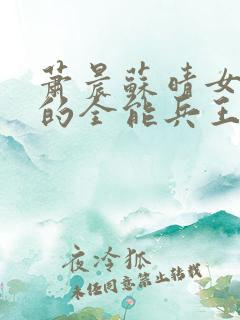 蕭晨蘇晴女
的全能兵王
夜冷狐
未经同意禁止转载